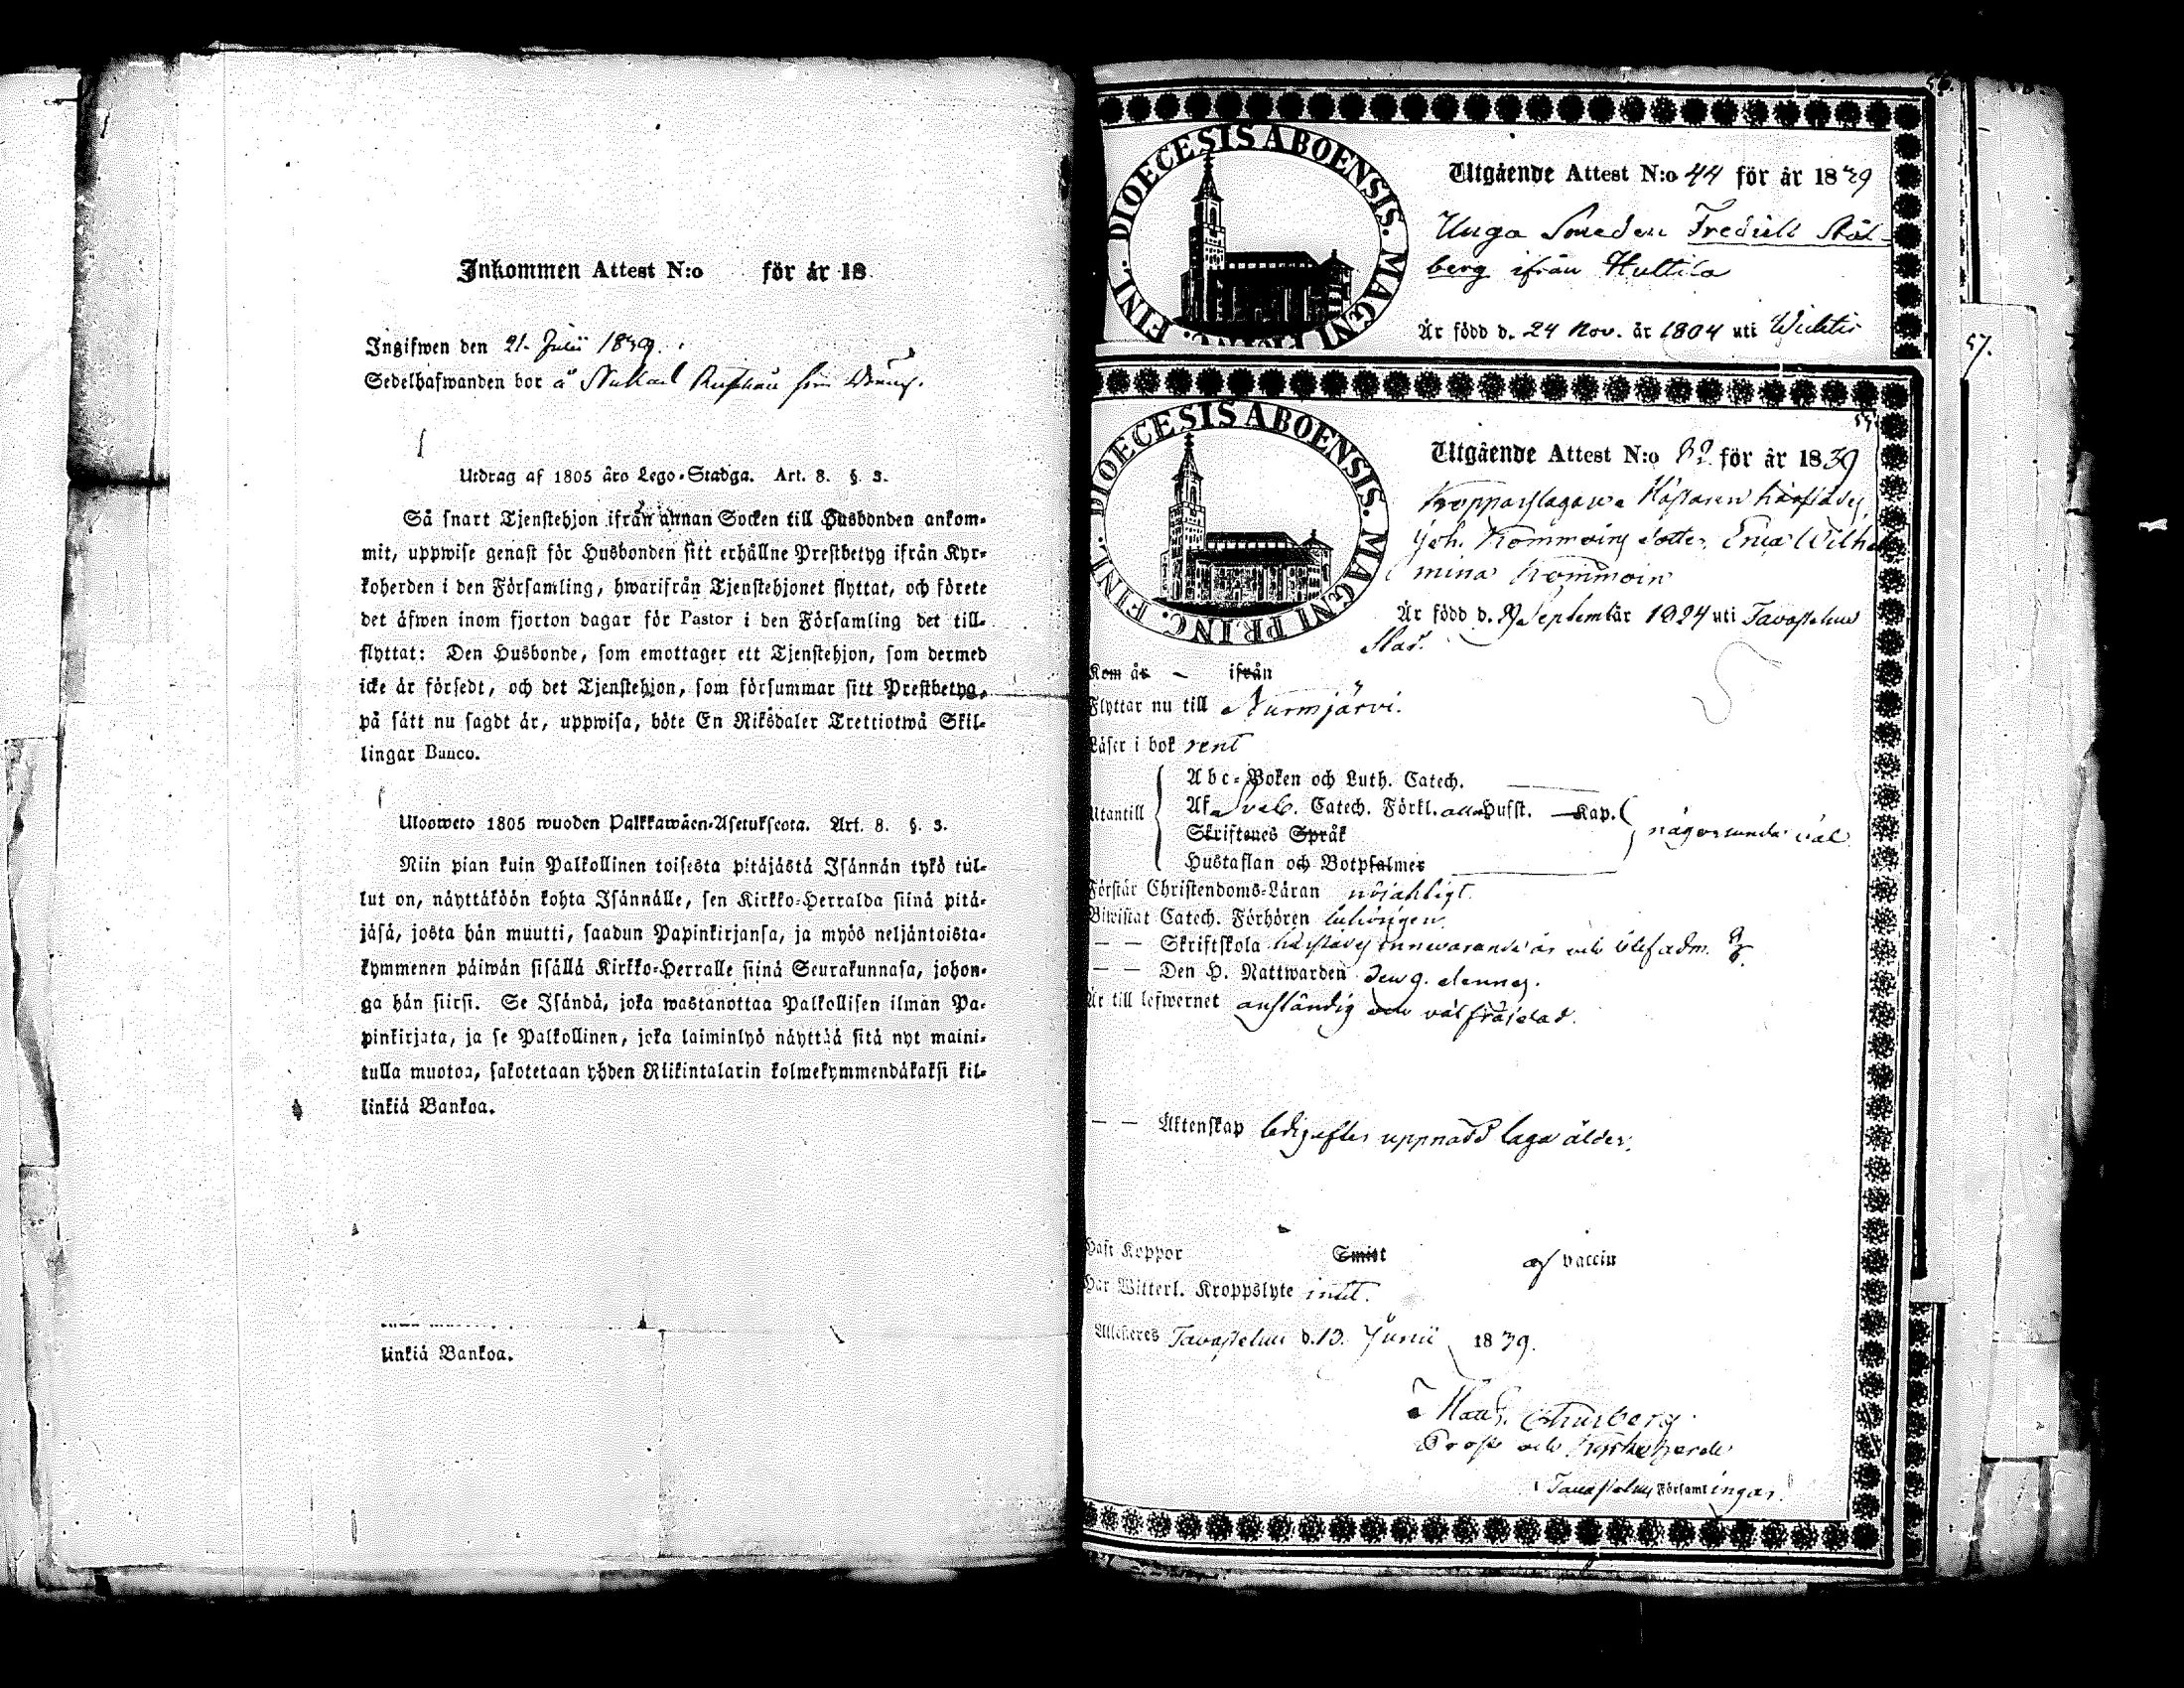 Inkommen Attest N:o för år 18
Ingifwen den 21. Julii 1839.
Sedelhafwanden bor å
Utdrag af 1805 års Lego-Stadga. Art. 8. §. 3.
Så snart Tjenstehjon ifrån annan Socken till Husbonden ankom-
mit, uppwise genast för Husbonden sitt erhållne Prestbetyg ifrån Kyr-
koherden i den Församling, hwarifrån Tjenstehjonet flyttat, och förete
det äfwen inom fjorton dagar för Pastor i den Församling det till-
flyttat: Den Husbonde, som emottager ett Tjenstehjon, som dermed
icke är försedt, och det Tjenstehjon, som försummar sitt Prestbetyg,
på sätt nu sagdt är, uppwisa, böte En Riksdaler Trettiotwå Skil-
lingar Banco.
Uloosweto 1805 wuoden Palkkawäen-Asetuksesta. Art. 8. §. 3.
Niin pian kuin Palkollinen toisesta pitäjästä Isännän tykö tul-
lut on, näyttäköön kohta Isännälle, sen Kirkko-Herralda siinä pitä-
jäsä, josta hän muutti, saadun Papinkirjansa, ja myös neljäntoista-
kymmenen päiwän sisällä Kirkko-Herralle siinä Seurakunnasa, johon-
ga hän siirsi. Se Isändä, joka wastanottaa Palkollisen ilman Pa-
pinkirjata, ja se Palkollinen, joka laiminlyö näyttää sitä nyt maini-
tulla muotoa, sakotetaan yhden Riikintalarin kolmekymmendäkaksi kil-
linkiä Bankoa.
linkiä Bankoa.
56.
DIOECESIS ABOENSIS. MAGNI PRINC. FINL.
Utgående Attest N:o 44 för år 1839
Unga Smeden Fredrik Stål-
berg ifrån Huttila
Är född d. 24 Nov. år 1804 uti Wichtis
57.
DIOECESIS ABOENSIS. MAGNI PRINC. FINL.
Utgående Attest N:o 82 för år 1839
Kopparslagaren
Joh. Kommoins dotter, Erica Wilhel
mina Kommoin
Är född d. September 1824 uti Tavastehus
Stad.
Kom år - ifrån
Flyttar nu till Nurmijärvi.
Läser i bok rent
Abc-Boken och Luth. Catech.
Utantill Af Sveb. Catech. Förkl. alla Hufst. — Kap. någorlunda väl.
Skriftenes Språk
Hustaflan och Botpsalmer
Förstår Christendoms-Läran nöjaktigt.
Biwistat Catech. Förhören
— — Skriftskola härstädes innevarande år och blef adm.
— — Den H. Nattwarden den 9. dennes.
Är till lefwernet anständig och väl fräjdad.
— — Äktenskap ledig efter uppnådd laga ålder.
Haft Koppor Smitt af vaccin
Har Witterl. Kroppslyte intet.
Attesteres Tavastehus d. 13. Junii 1839.
Prost och Kyrkoherde
Tavastehus Församlingar.